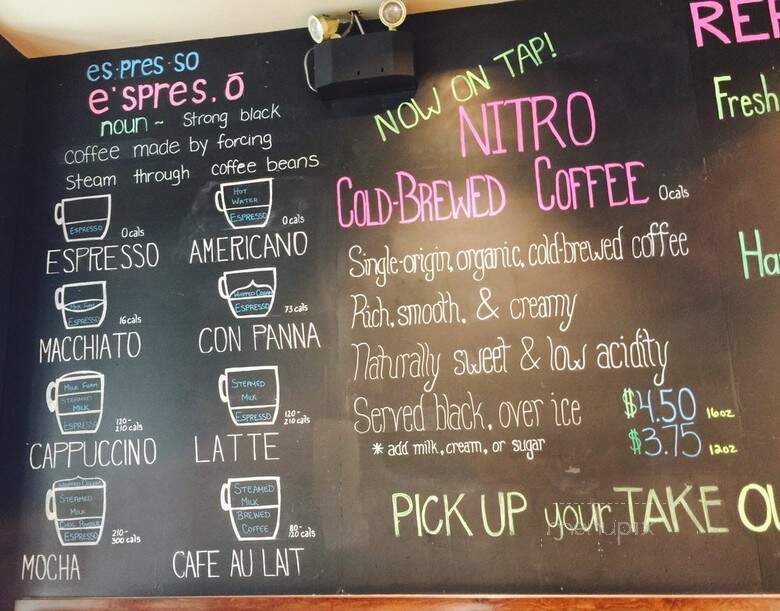 es·pres·so
e'spres.ō
noun ~ Strong black
coffee made by forcing
Steam through coffee beans
ESPRESSO
0cals
ESPRESSO
HOT
WATER
ESPRESSO
0cals
AMERICANO
MILK FOAM
ESPRESSO
16cals
MACCHIATO
WHIPPED CREAM
ESPRESSO
73cals
CON PANNA
MILK FOAM
STEAMED
MILK
ESPRESSO
120-
210cals
CAPPUCCINO
STEAMED
MILK
ESPRESSO
120-
210 cals
LATTE
WHIPPED CREAM
STEAMED
MILK
ESPRESSO
210-
300 cals
MOCHA
STEAMED
MILK
BREWED
COFFEE
cals
CAFE AU LAIT
NOW ON TAP!
NITRO
COLD-BREWED COFFEE 0cals
Single-origin, organic, cold-brewed coffee
Rich, smooth, & creamy
Naturally sweet & low acidity
Served black, over ice $4.50 16oz
* add milk, cream, or sugar $3.75 12oz
PICK UP your TAKE OU
menupix
REF
Fresh
Ha